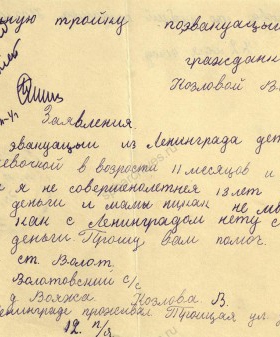 ную тройку по эвануацыи
граждани
Козловой В.
Заявления
эвануацыи из Ленинграда дет
евочкой в возрости 11 месяцов и
я не совершенолтнея 13 лет
деньги и мамы никак не мы
как с Ленинградом нету с
деньги Прошу вам помоч.
ст. Волот
Волотовский с/с
д Вояжа Козлова В.
Ленинграде проживал Троицкая ул